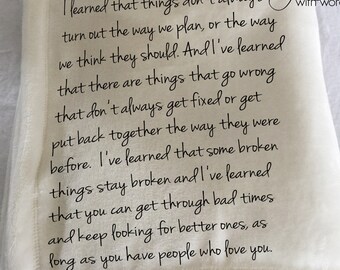 with wor
I learned that things don't always
turn out the way we plan, or the way
we think they should. And I've learned
that there are things that go wrong
that don't always get fixed or get
put back together the way they were
before. I've learned that some broken
things stay broken and I've learned
that you can get through bad times
and keep looking for better ones, as
long as you have people who love you.